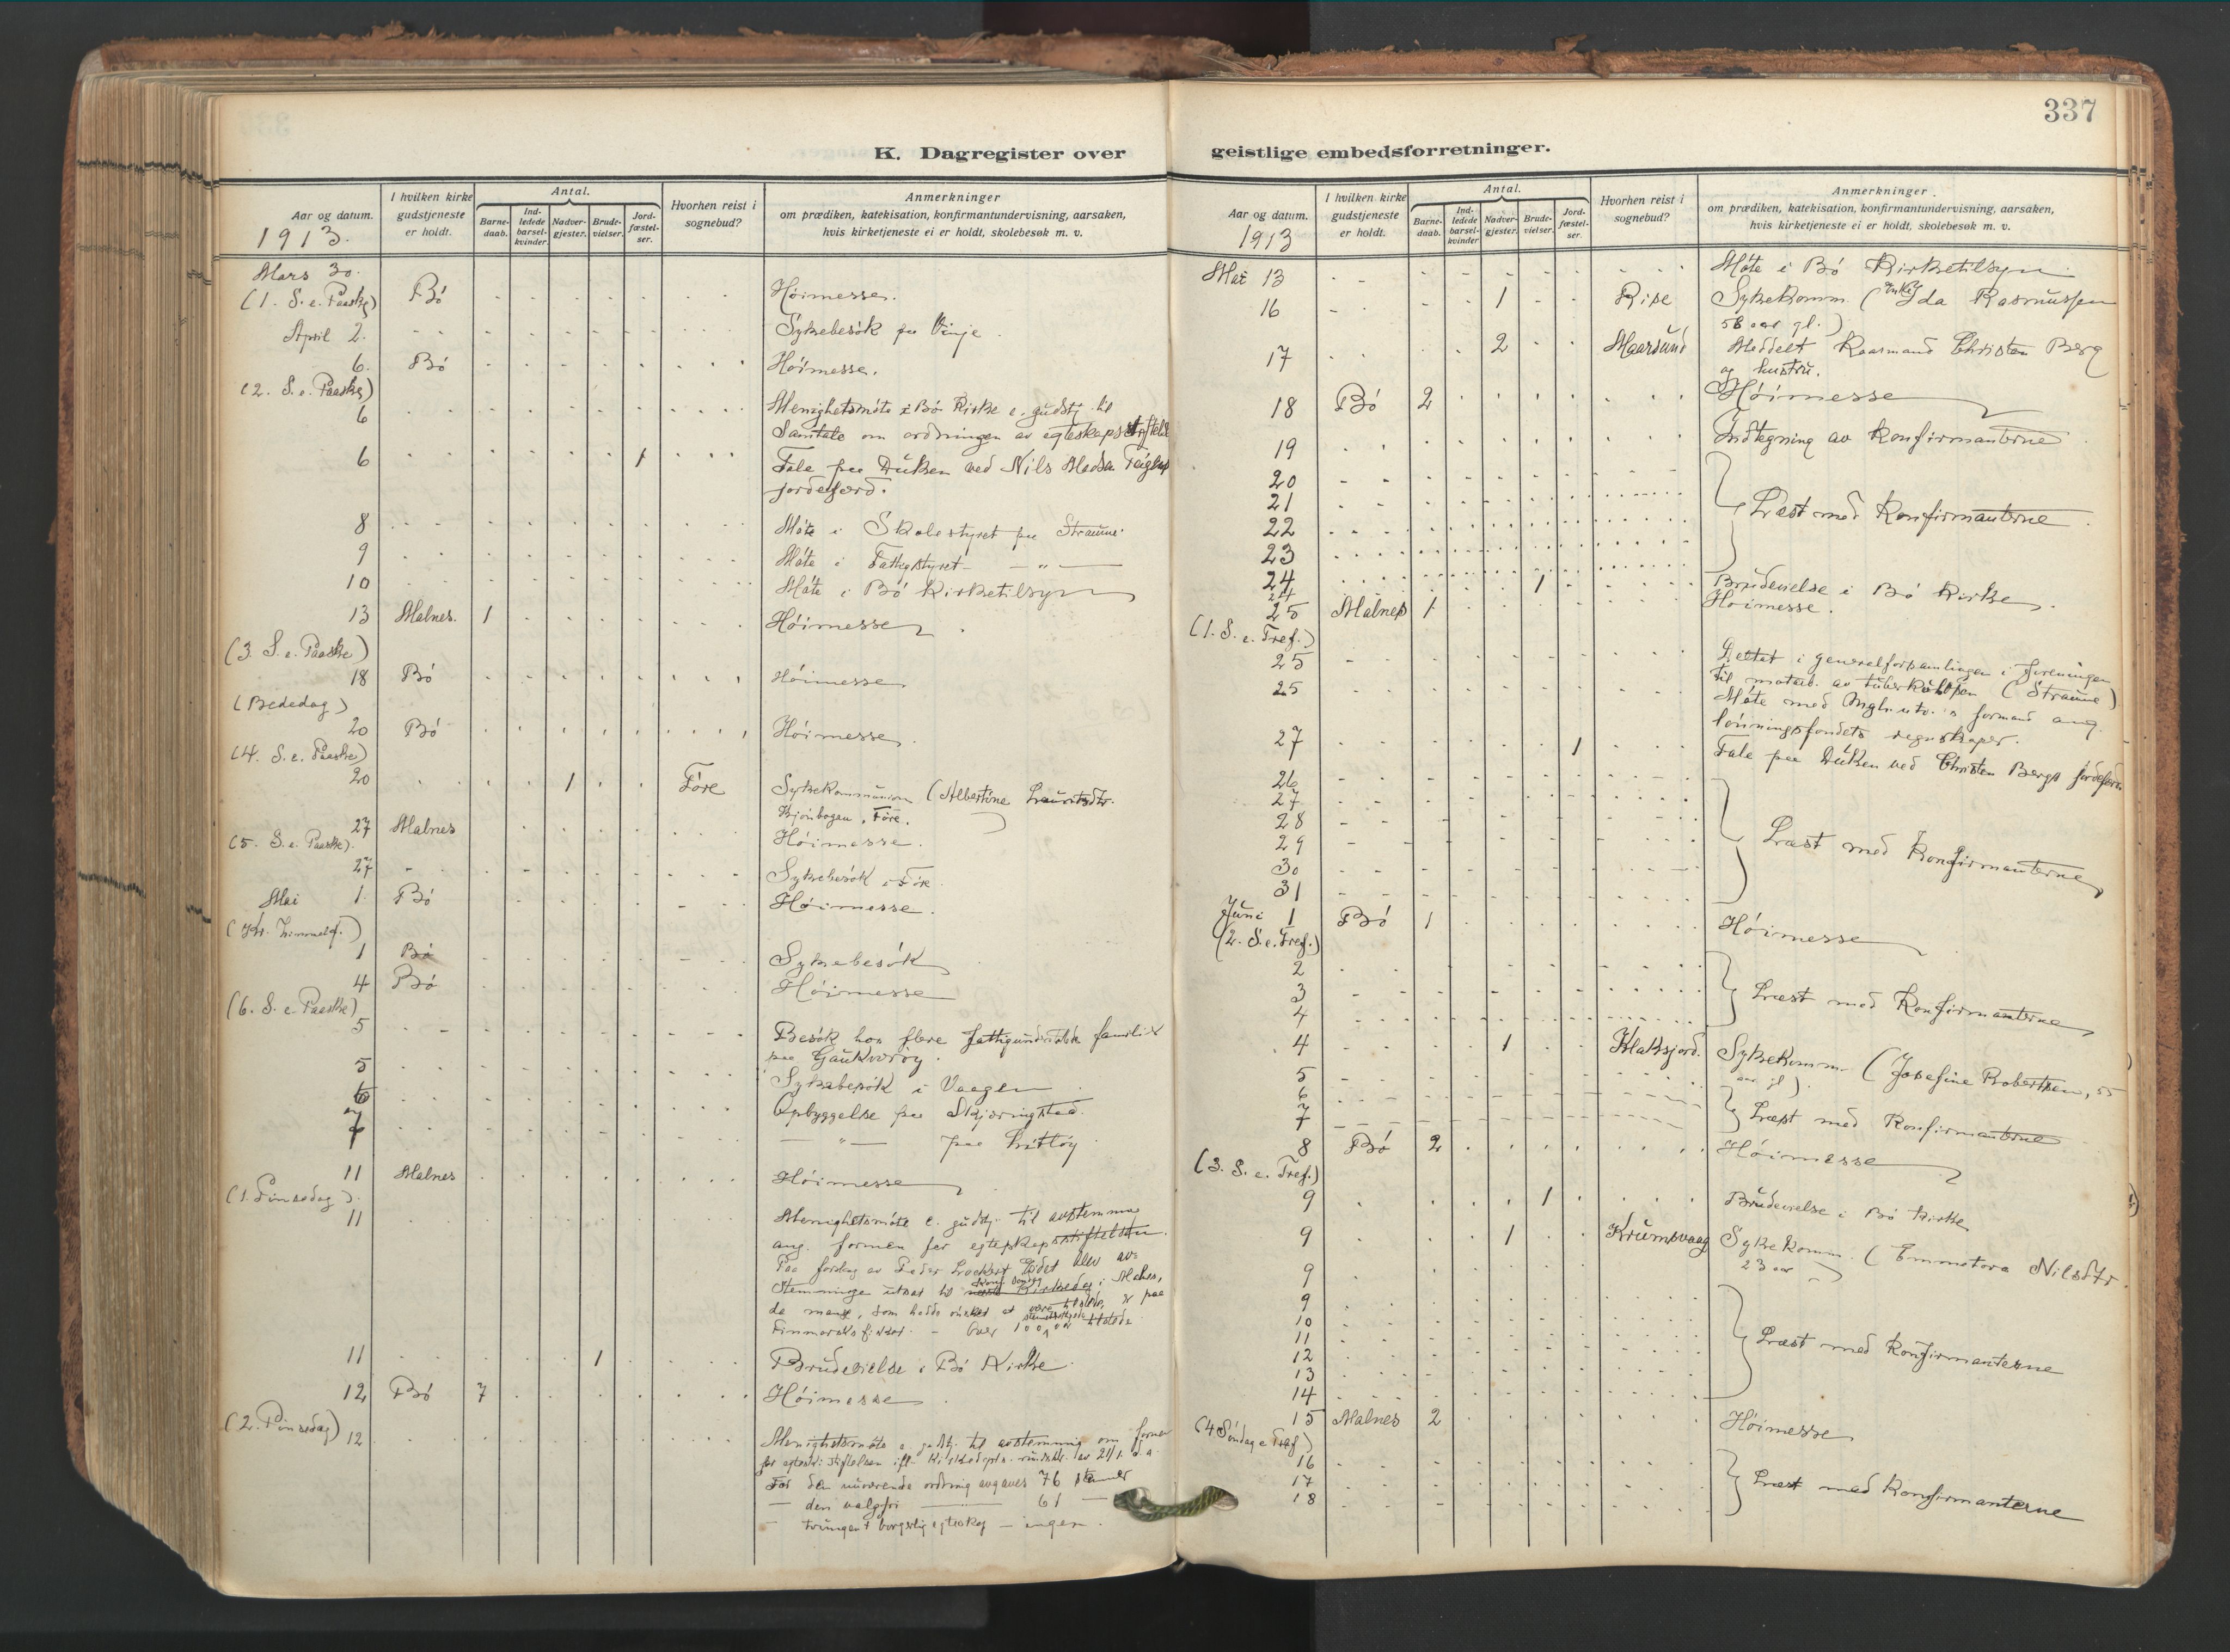 337
K. Dagregister over
Aar og datum.
1913.
I hvilken kirke gudstjeneste er holdt.
Antal.
Barne-daab.
Ind-ledede barsel-kvinder.
Nadver-gjester.
Brude-vielser.
Jord-fæstel-ser.
Hvorhen reist i sognebud?
Anmerkninger
om prædiken, katekisation, konfirmantundervisning, aarsaken,
hvis kirketjeneste ei er holdt, skolebesøk m. v.
Mars 30.
(1. S. e. Paaske) Bö Höimesse.
April 2. Sykebesök paa Vinje
6. Bö Höimesse.
(2. S. e. Paaske)
6 Menighetsmöte i Bö Kirke e. gudstj. til
Samtale om ordningen av egteskaps
6 1 Tale paa Duksen ved Nils
jordefærd.
8 Möte i Skolestyret paa Straume
9 Möte i Fattigstyret - " -
10 Möte i Bö Kirketilsyn
13 Malnes. 1 Höimesse
(3 S. e. Paaske)
18 Bö Höimesse
(Bededag)
20 Bö Höimesse.
(4. S. e. Paaske)
20 1 Före Sykekommunion (Albertine
Före.
27 Malnes
(5. S. e. Paaske). Höimesse.
27 Sykebesök i Före
Mai 1 Bö Höimesse.
(Kr. himmelf.)
1 Bö Sykebesök
4 Bö Höimesse
(6. S. e. Paaske)
5 Besök hos flere familier
paa Gaukværöy.
5 Sykebesök i Vaagen
6 Opbyggelse paa Skjæringstad.
og
7 — " — paa Litlöy
11 Malnes Höimesse
(1. Pinsedag)
11 Menighetsmöte e. gudstj. til avstemme
ang. formen for egteskapsstiftelsen.
Paa forslag av Peder blev av=
Stemminge utsat til Kirkedag i Malnes,
da mange, som hadde ønsket at være tilstede, er paa
Finmarksfisket. - Over 100 tilstede
11 1 Brudevielse i Bö Kirke
12 Bö 7 Höimesse
(2. Pinsedag)
12 Menighetsmöte e. gudstj. til avstemning om formen
for
For den nuværende ordning avgaves 76 stemmer
— den valgfri — 61 —
— tvungent borgerlig egteskap — ingen.
geistlige embedsforretninger.
Aar og datum.
1913
I hvilken kirke gudstjeneste er holdt.
Antal.
Barne-daab.
Ind-ledede barsel-kvinder
Nadver-gjester.
Brude-vielser.
Jord-fæstel-ser.
Hvorhen reist i sognebud?
Anmerkninger.
om prædiken, katekisation, konfirmantundervisning, aarsaken,
hvis kirketjeneste ei er holdt, skolebesøk m. v.
Mai 13 Möte i Bö Kirketilsyn
16 1 Rise Sykekomm. (Enke Ida Rasmussen
58 aar gl.)
17 2 Maarsund Meddelt Kaarmand Christen Berg
og hustru.
18 Bö 2 Höimesse
19 Indtegning av Konfirmanterne
20
21
22 Læst med Konfirmanterne.
23
24
24 1 Brudevielse i Bö Kirke
25 Malnes 1 Höimesse.
(1. S. e. Tref.)
25 Deltat i generalforsamlingen i foreningen
til motarb. av tuberkulosen (Straume)
25 Möte med formand ang.
lönningsfondets regnskaper.
27 1 Tale paa Duksen ved Christen Bergs jordefærd
26
27
28
29 Læst med Konfirmanterne
30
31
Juni 1 Bö 1 Höimesse
(2. S. e. Tref.)
2
3 Læst med Konfirmanterne
4
4 1 Klaksjord. Sykekomm. (Josefine Robertsen, 55
aar gl).
5
6 Læst med Konfirmanterne
7
8 Bö 2 Höimesse
(3. S. e. Tref.)
9 1 Brudevielse i Bö Kirke
9 1 Krumsvaag Sykekomm. (Emmatora Nilsdtr.
23 aar
9
9
10
11 Læst med Konfirmanterne
12
13
14
15 Malnes 2 Höimesse
(4 Söndag e Tref)
16
17 Læst med Konfirmanterne
18